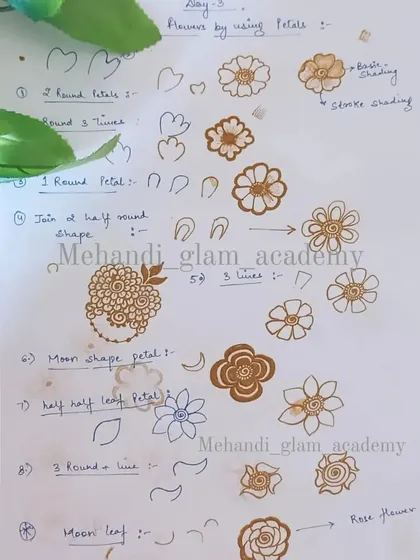 Day-3.
Flowers by using Petals :-
Basic-
Shading
① 2 Round Petals :-
Stroke Shading
Round 3 lines :
③ 1 Round Petal :-
④ Join 2 half round
Shape :-
Mehandi_glam_academy
5.) 3 lines :-
6.) Moon shape petal :-
7.) half half leaf Petal :
Mehandi_glam_academy
8.) 3 Round + line :-
Moon leaf :-
Rose flower